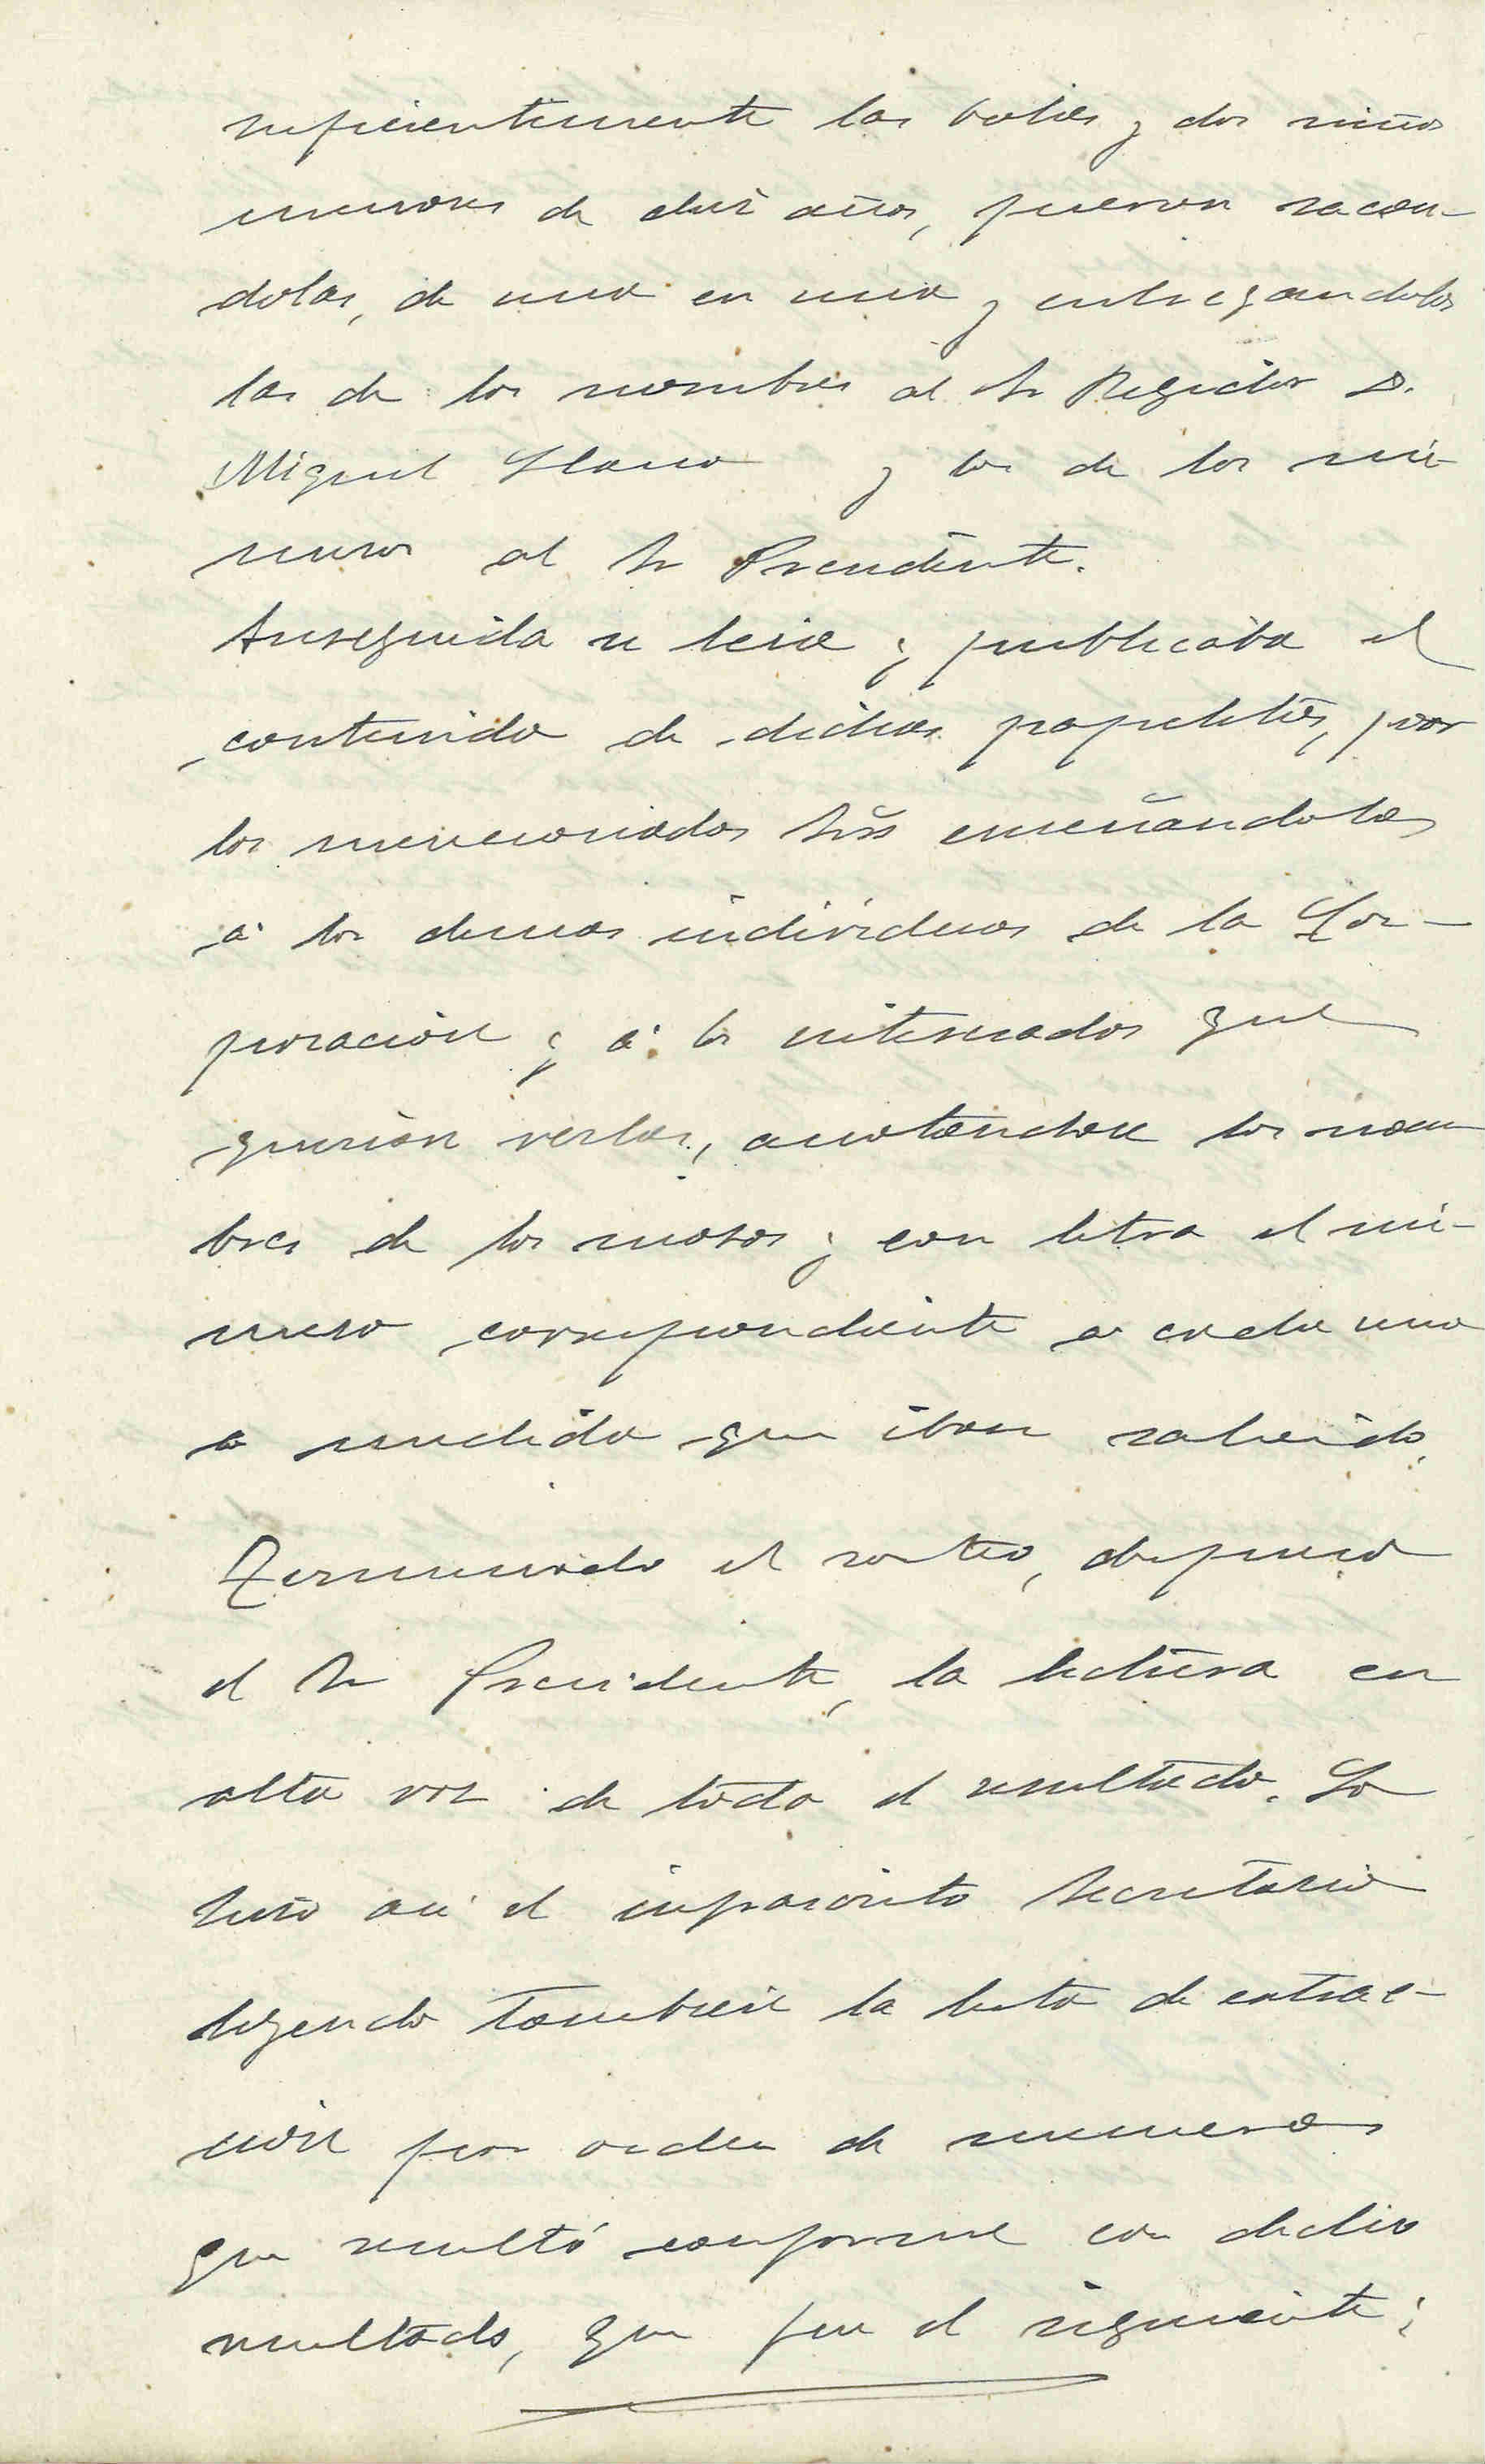 suficientemente las bolas y dos niños
menores de diez años, fueron sacan-
dolas, de una en una y entregandolas
las de los nombres al Sr Regidor D.
Miguel Llano y las de los nú-
meros al Sr Presidente.
Enseguida se leia y publicaba el
contenido de dichas papeletas, por
los mencionados Srs enseñándolas
á los demas individuos de la Cor-
poración y á los interesados que
querian verlas, anotandose los nom
bres de los mozos y con letra el nú-
mero correspondiente a cada uno
a medida que iban saliendo.
Terminado el sorteo, dispuso
el Sr Presidente, la lectura en
alta voz de todo el resultado. Lo
hizo asi el infrascrito Secretario
leyendo tambien la lista de extrac-
ción por orden de numeros
que resultó conforme con dicho
resultado, que fue el siguiente: